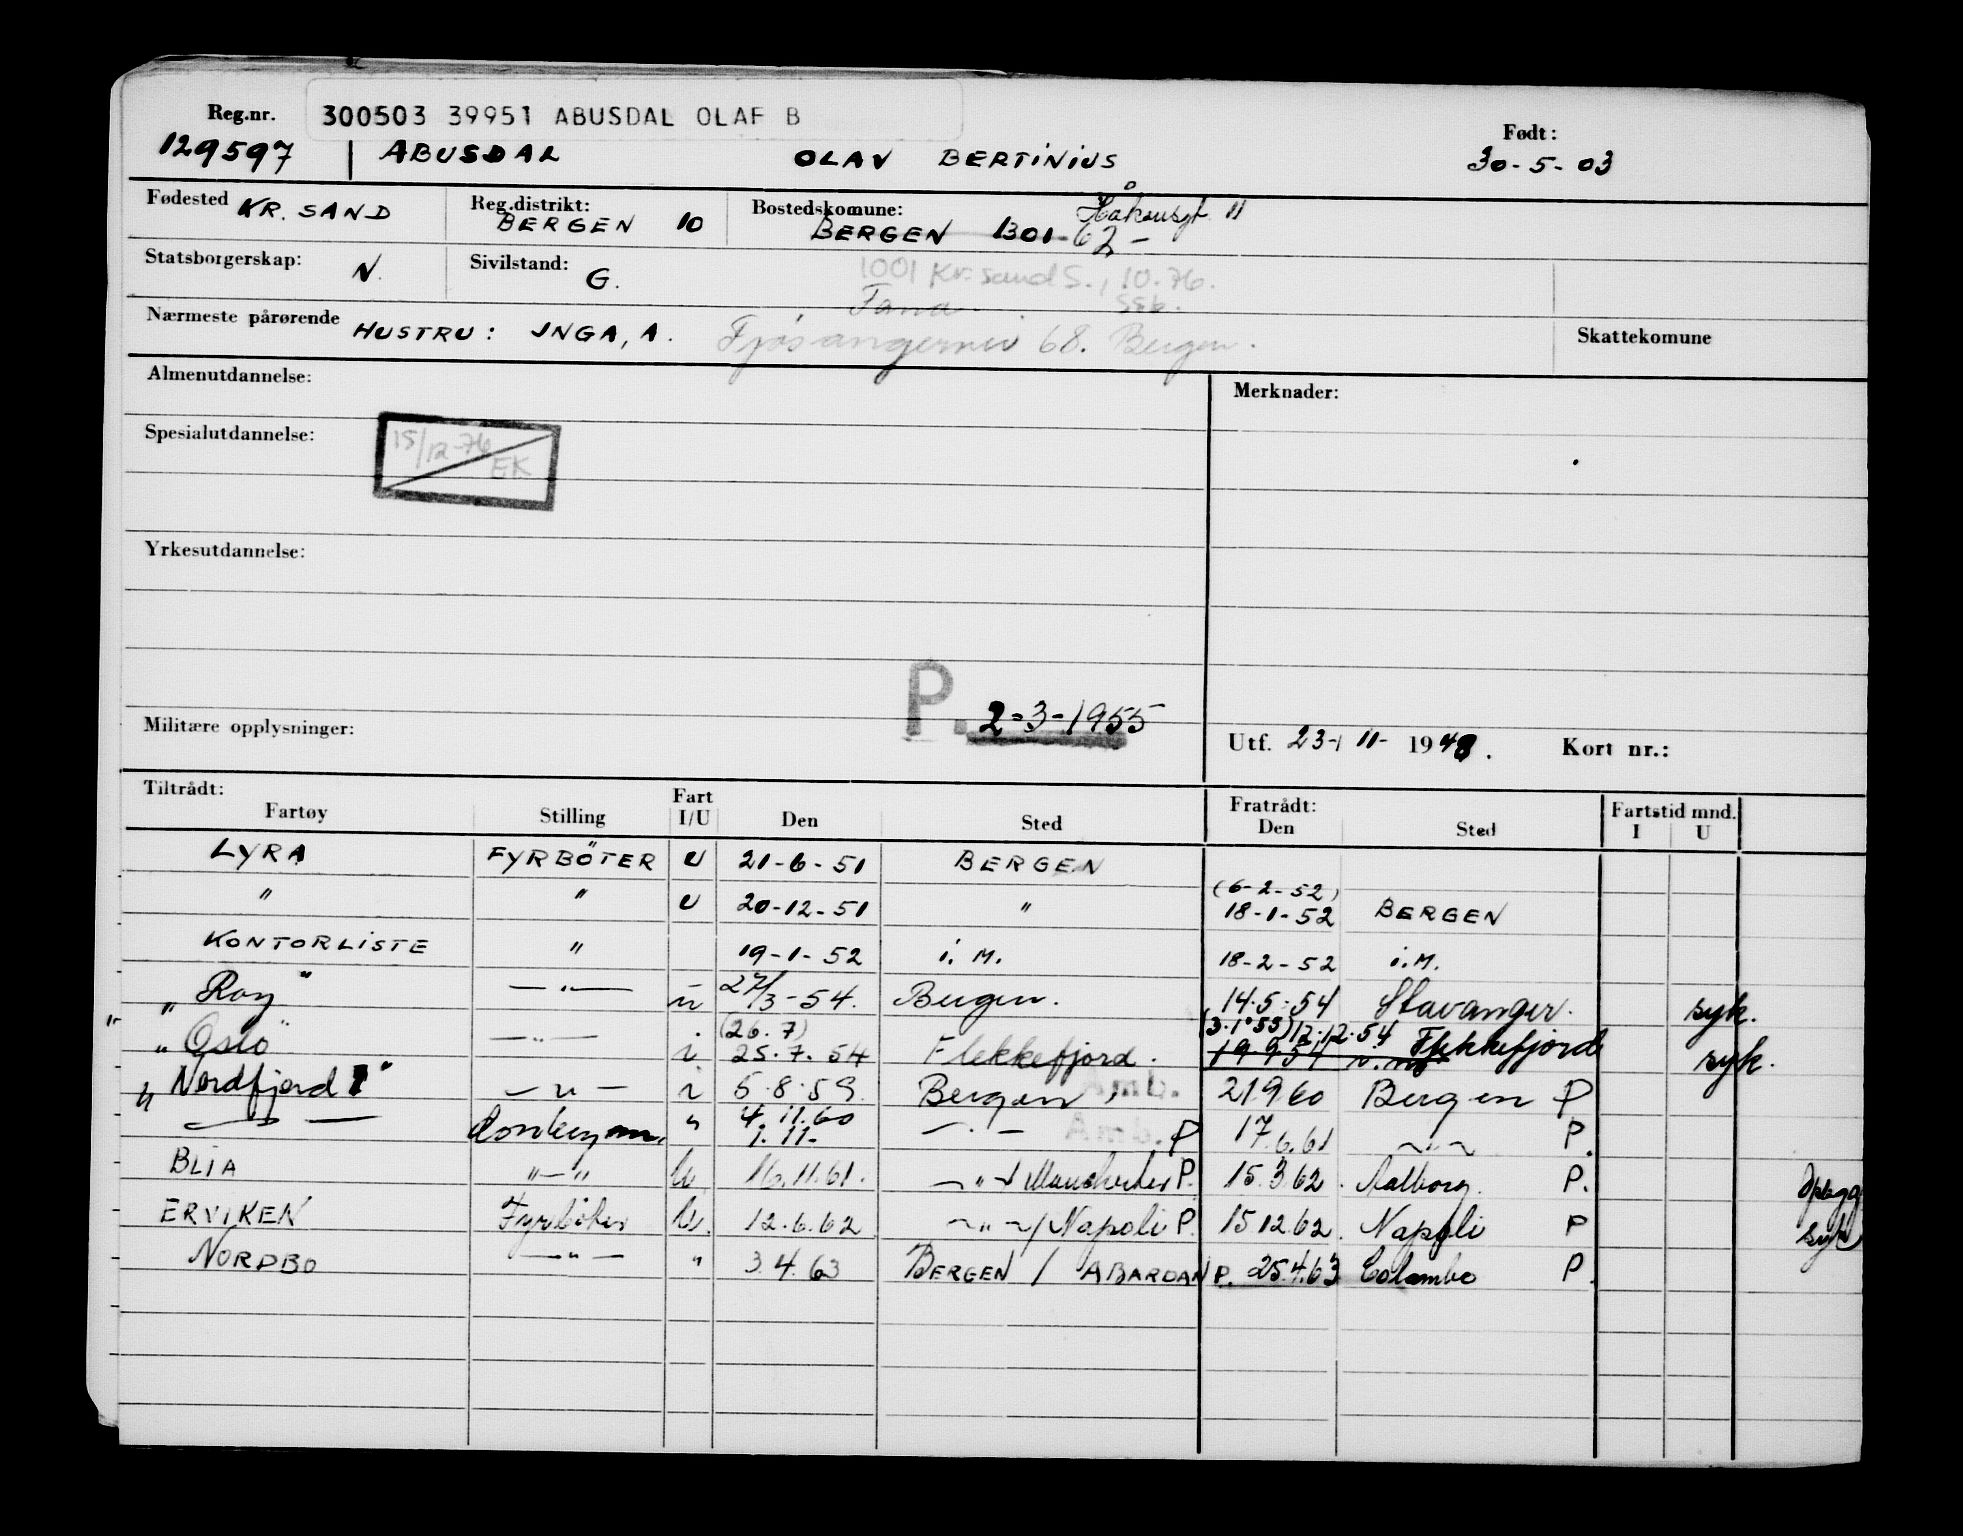 Reg.nr. 300503 39951 ABUSDAL OLAF B Født:
129597 ABUSDAL OLAV BERTINIUS 30-5-03
Fødested KR. SAND Reg.distrikt: BERGEN 10 Bostedskomune: BERGEN 1301 Håkonsgt. 11
62-
Statsborgerskap: N. Sivilstand: G. 1001 Kr.sand S., 10.76.
Fana Ssb.
Nærmeste pårørende HUSTRU: INGA, A. Fjøsangervei 68. Bergen. Skattekomune
Almenutdannelse: Merknader:
Spesialutdannelse: 15/12-76 EK
Yrkesutdannelse:
P. 2-3-1955
Militære opplysninger: Utf. 23-11-1948. Kort nr.:
Tiltrådt: Fart Fratrådt: Fartstid mnd.
Fartøy Stilling I/U Den Sted Den Sted I U
LYRA FYRBÖTER U 21-6-51 BERGEN
" " U 20-12-51 " (6-2-52) 18-1-52 BERGEN
KONTORLISTE " 19-1-52 i. M. 18-2-52 i.M.
"Roy" — " — u 27/3-54. Bergen. 14.5.54 Stavanger. syk.
"Oslo" — " — i (26.7) 25.7.54 Flekkefjord. (3.1.55) 12.12.54 Flekkefjord syk.
19.9.54
"Nordfjord I" — " — i 5.8.59 Bergen, Amb. 21960 Bergen P
— " — Donkeyman " 4.11.60 — " — Amb. P 17.6.61 — " — P.
1.11-
BLIA " — " U 16.11.61. — " — / Manchester P. 15.3.62. Aalborg. P. Opplegg
ERVIKEN Fyrböter U. 12.6.62 — " — / Napoli P. 15.12.62. Napoli P syk
NORDBO — " — " 3.4.63 BERGEN / ABARDAN P. 25.4.63 Colombo P.